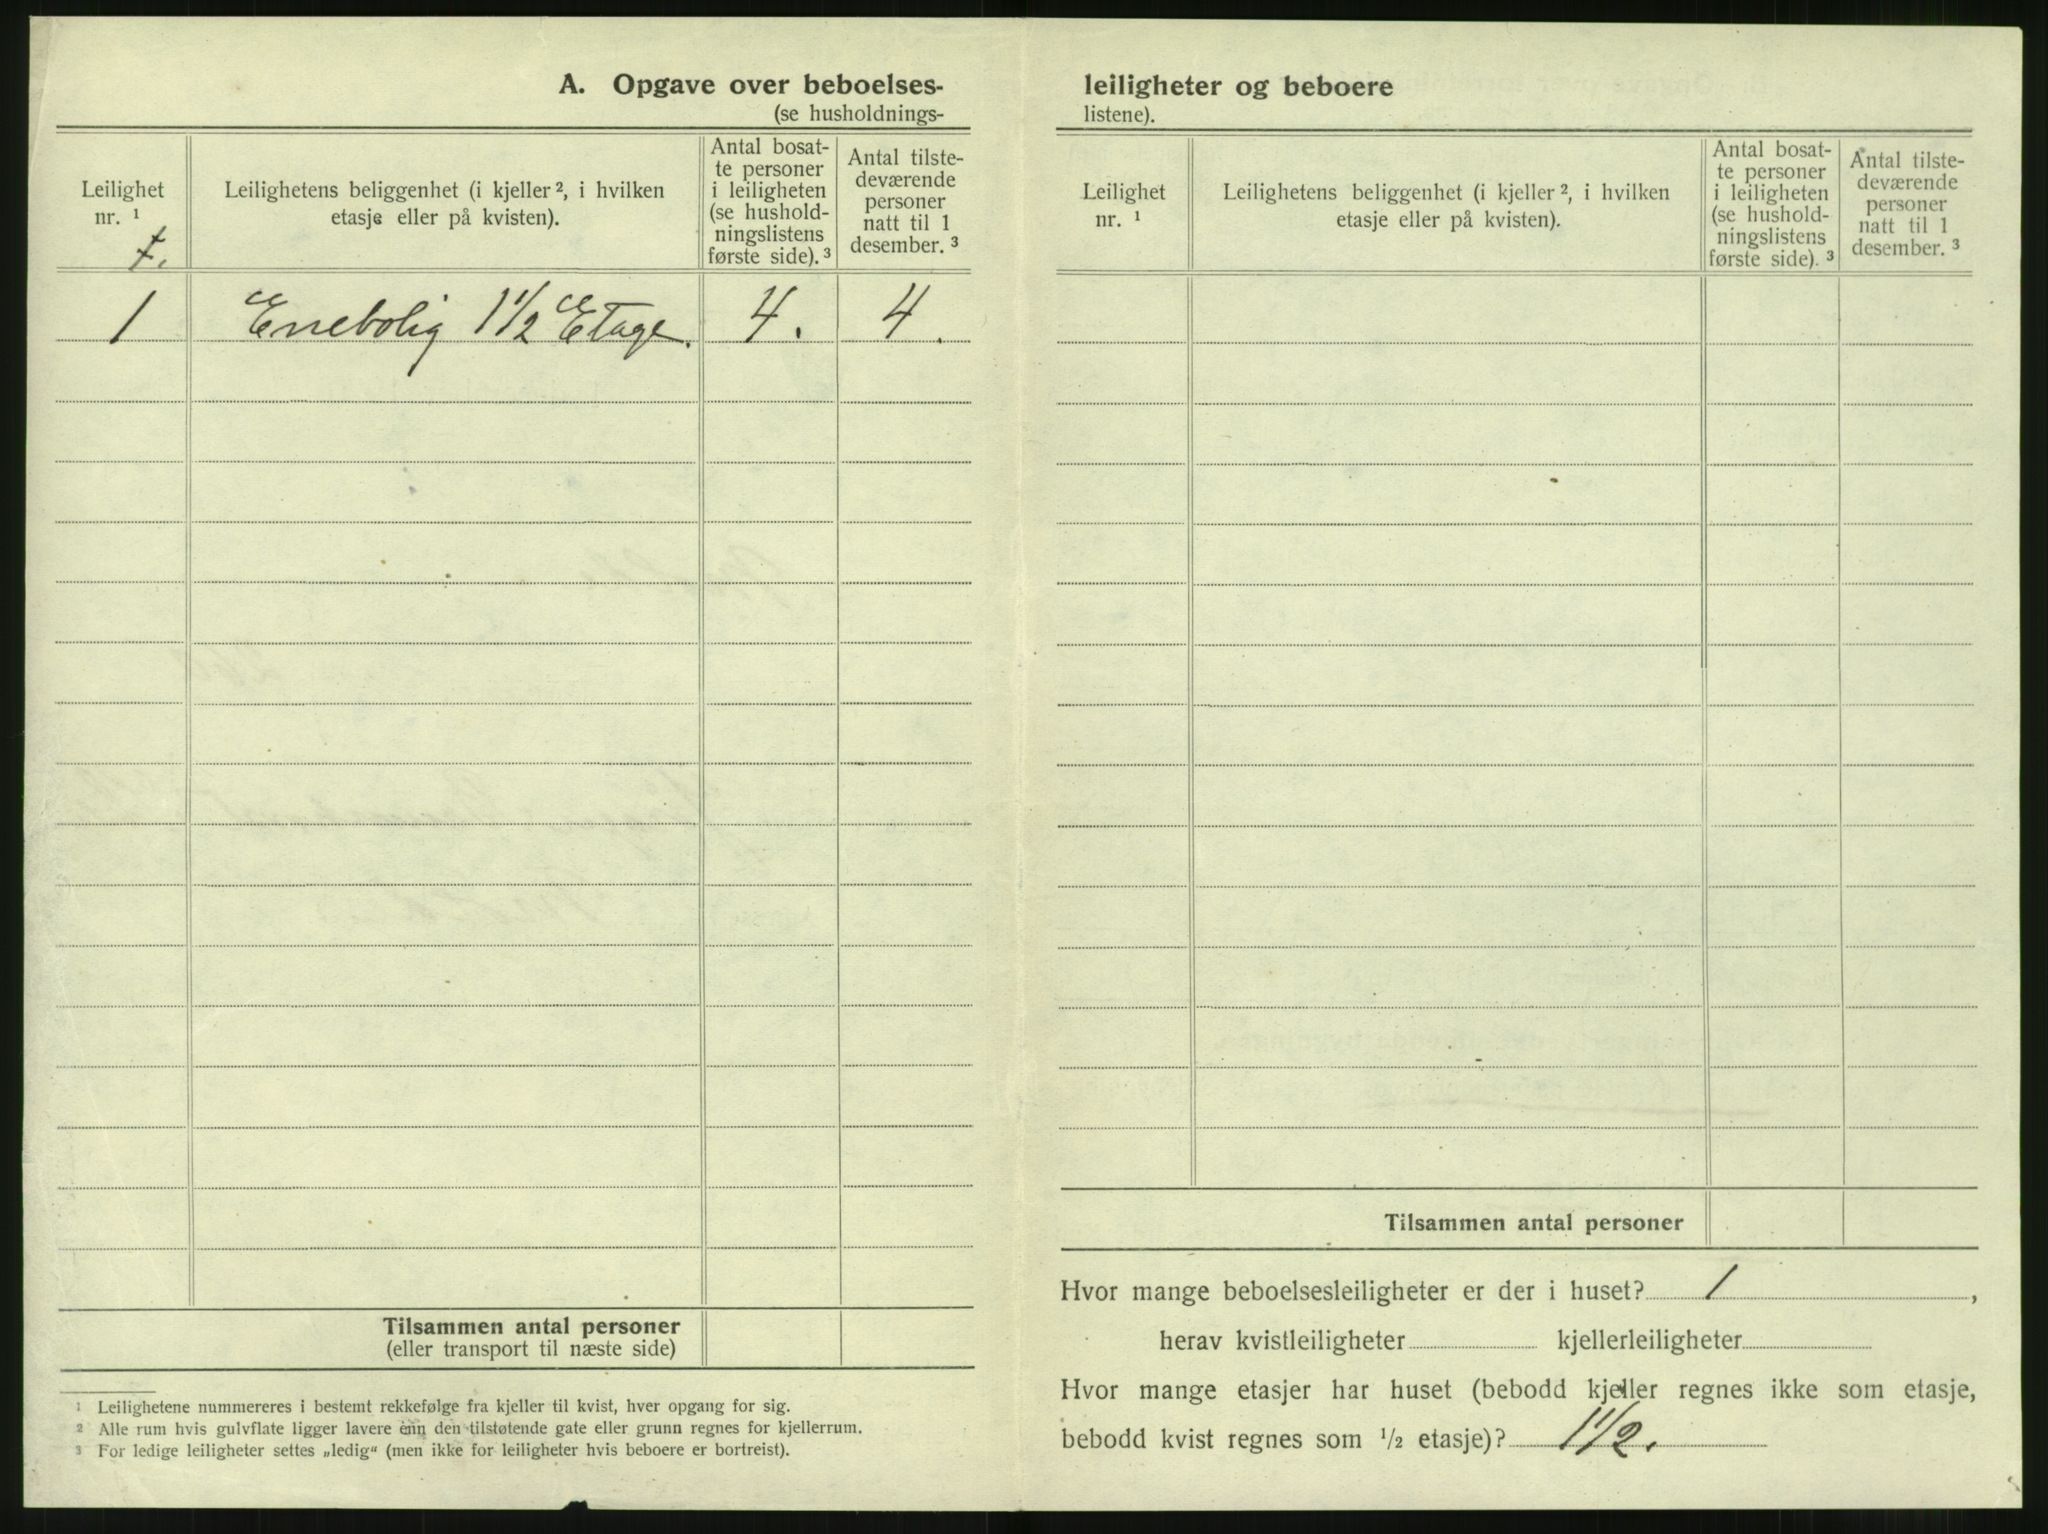 A. Opgave over beboelses-
(se husholdnings-
Leilighet
nr. ¹
Leilighetens beliggenhet (i kjeller ², i hvilken
etasje eller på kvisten).
Antal bosat-
te personer
i leiligheten
(se hushold-
ningslistens
første side). ³
Antal tilste-
deværende
personer
natt til 1
desember. ³
1 Enebolig 1 1/2 Etage. 4. 4.
Tilsammen antal personer
(eller transport til næste side)
¹ Leilighetene nummereres i bestemt rekkefølge fra kjeller til kvist, hver opgang for sig.
² Alle rum hvis gulvflate ligger lavere enn den tilstøtende gate eller grunn regnes for kjellerrum.
³ For ledige leiligheter settes „ledig“ (men ikke for leiligheter hvis beboere er bortreist).
leiligheter og beboere
listene).
Leilighet
nr. ¹
Leilighetens beliggenhet (i kjeller ², i hvilken
etasje eller på kvisten).
Antal bosat-
te personer
i leiligheten
(se hushold-
ningslistens
første side). ³
Antal tilste-
deværende
personer
natt til 1
desember. ³
Tilsammen antal personer
Hvor mange beboelsesleiligheter er der i huset? 1,
herav kvistleiligheter kjellerleiligheter
Hvor mange etasjer har huset (bebodd kjeller regnes ikke som etasje,
bebodd kvist regnes som ½ etasje)? 1 1/2.